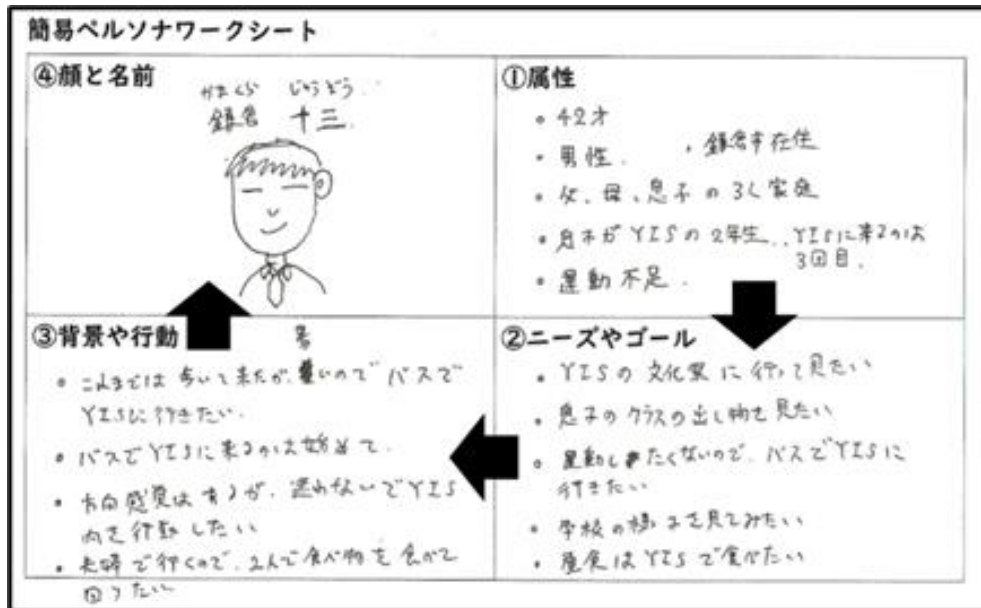 簡易ペルソナワークシート
④顔と名前
かまくら じゅうぞう
鎌倉 十三
①属性
・42才
・男性
・鎌倉市在住
・父、母、息子の3人家庭
・息子がYISの2年生、YISに来るのは
3回目
・運動不足
③背景や行動
・これまでは歩いて来たが、暑いのでバスで
YISに行きたい
・バスでYISに来るのは始めて
・方向感覚はあるが、迷わないでYIS
内を行動したい
・夫婦で行くので、2人で食べ物を食べて
回りたい
②ニーズやゴール
・YISの文化祭に行って見たい
・息子のクラスの出し物を見たい
・運動したくないので、バスでYISに
行きたい
・学校の様子を見てみたい
・昼食はYISで食べたい